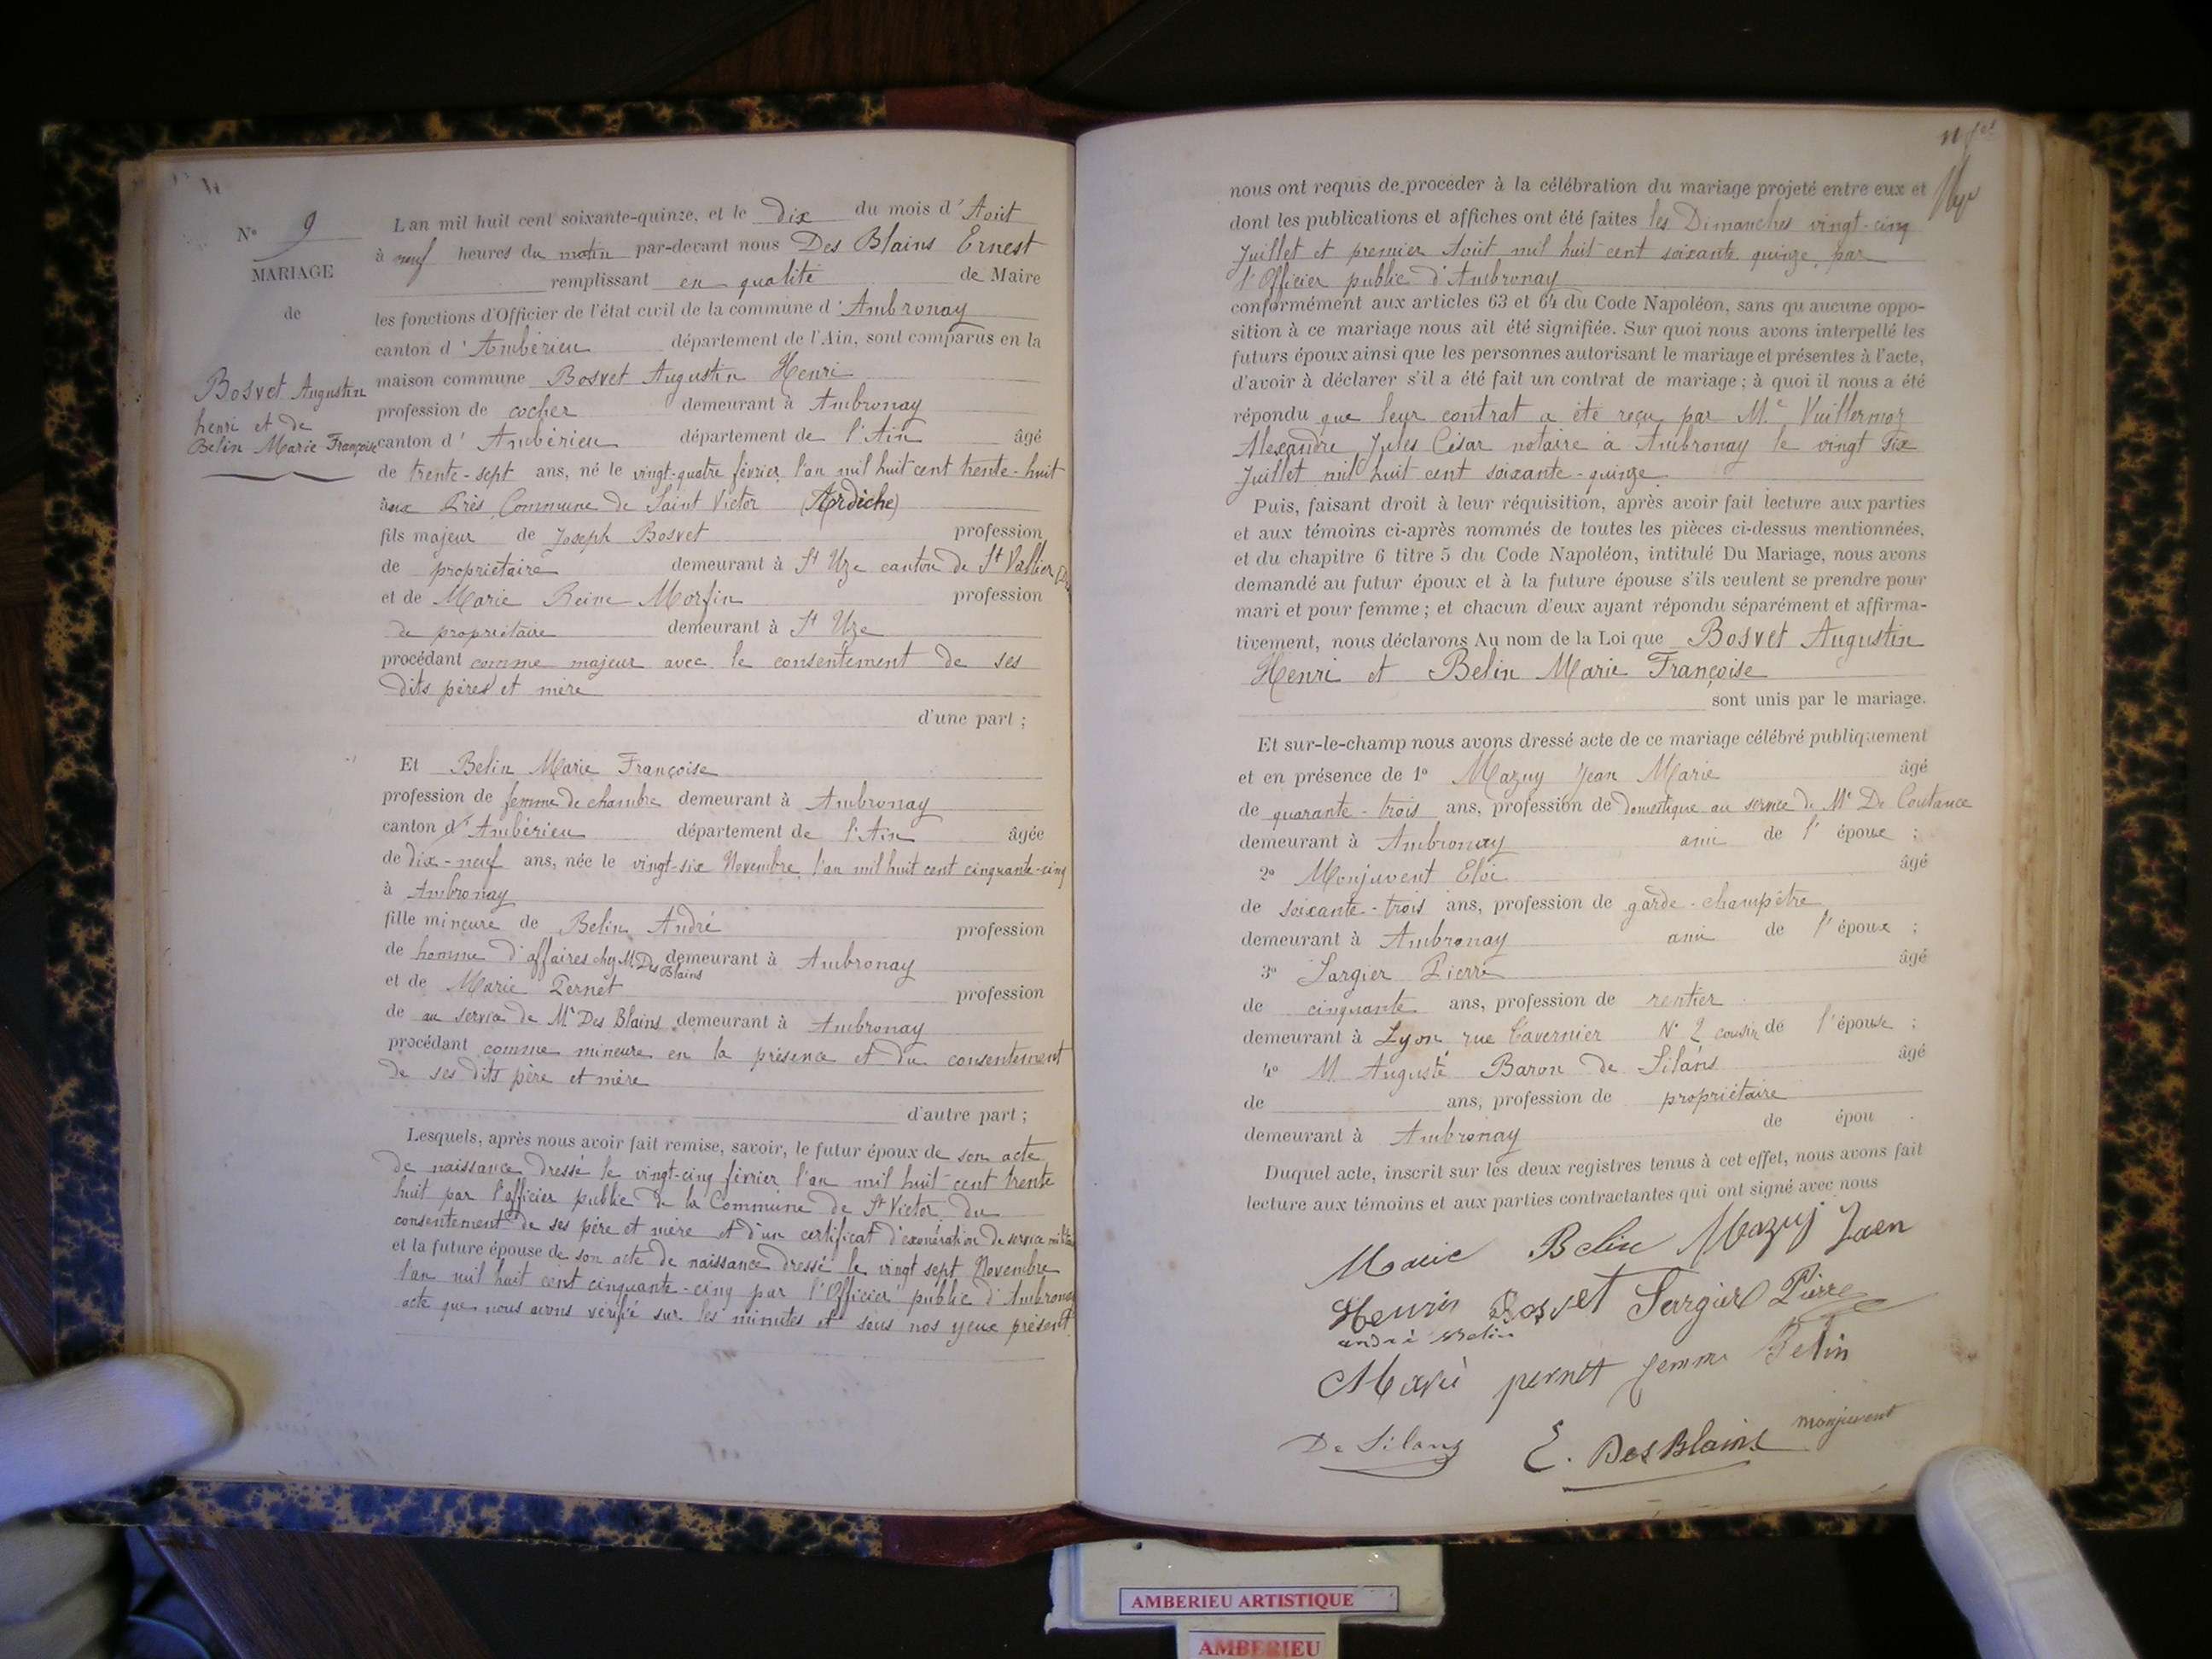 N° 9
MARIAGE
de
Bosvet Augustin
henri et de
Belin Marie Françoise
L'an mil huit cent soixante-quinze, et le dix du mois d'Août
à neuf heures du matin par-devant nous Des Blains Ernest
remplissant en qualité de Maire
les fonctions d'Officier de l'état civil de la commune d'Ambronay
canton d'Ambérieu département de l'Ain, sont comparus en la
maison commune Bosvet Augustin Henri
profession de cocher demeurant à Ambronay
canton d'Ambérieu département de l'Ain âgé
de trente-sept ans, né le vingt-quatre février, l'an mil huit cent trente-huit
aux Près Commune de Saint Victor (Ardèche)
fils majeur de Joseph Bosvet profession
de propriétaire demeurant à St Uze canton de St Vallier
et de Marie Reine Morfin profession
de propriétaire demeurant à St Uze
procédant comme majeur avec le consentement de ses
dits pères et mère
d'une part ;
Et Belin Marie Françoise
profession de femme de chambre demeurant à Ambronay
canton d'Ambérieu département de l'Ain âgée
de dix-neuf ans, née le vingt-six Novembre, l'an mil huit cent cinquante-cinq
à Ambronay
fille mineure de Belin André profession
de homme d'affaires chez M. Des Blains demeurant à Ambronay
et de Marie Pernet profession
de au service de Mr Des Blains demeurant à Ambronay
procédant comme mineure en la présence et du consentement
de ses dits père et mère
d'autre part ;
Lesquels, après nous avoir fait remise, savoir, le futur époux de son acte
de naissance dressé le vingt-cinq février l'an mil huit cent trente
huit par l'officier public de la Commune de St Victor du
consentement de ses père et mère et d'un certificat d'exonération de service militaire
et la future épouse de son acte de naissance dressé le vingt sept Novembre
l'an mil huit cent cinquante-cinq par l'Officier public d'Ambronay
acte que nous avons vérifié sur les minutes et sous nos yeux présent
nous ont requis de procéder à la célébration du mariage projeté entre eux et
dont les publications et affiches ont été faites les Dimanches vingt-cinq
Juillet et premier Août mil huit cent soixante quinze, par
l'Officier public d'Ambronay
conformément aux articles 63 et 64 du Code Napoléon, sans qu'aucune oppo-
sition à ce mariage nous ait été signifiée. Sur quoi nous avons interpellé les
futurs époux ainsi que les personnes autorisant le mariage et présentes à l'acte,
d'avoir à déclarer s'il a été fait un contrat de mariage ; à quoi il nous a été
répondu que leur contrat a été reçu par Me Vuillermoz
Alexandre Jules César notaire à Ambronay le vingt six
Juillet mil huit cent soixante-quinze
Puis, faisant droit à leur réquisition, après avoir fait lecture aux parties
et aux témoins ci-après nommés de toutes les pièces ci-dessus mentionnées,
et du chapitre 6 titre 5 du Code Napoléon, intitulé Du Mariage, nous avons
demandé au futur époux et à la future épouse s'ils veulent se prendre pour
mari et pour femme ; et chacun d'eux ayant répondu séparément et affirma-
tivement, nous déclarons Au nom de la Loi que Bosvet Augustin
Henri et Belin Marie Françoise
sont unis par le mariage.
Et sur-le-champ nous avons dressé acte de ce mariage célébré publiquement
et en présence de 1° Mazuy Jean Marie âgé
de quarante-trois ans, profession de domestique au service de Mr De Coutance
demeurant à Ambronay ami de l'époux ;
2° Monjuvent Eloi âgé
de soixante-trois ans, profession de garde-champêtre
demeurant à Ambronay ami de l'époux ;
3° Sargier Pierre âgé
de cinquante ans, profession de rentier
demeurant à Lyon rue Tavernier N° 2 cousin de l'épouse ;
4° M Auguste Baron de Silans âgé
de ans, profession de propriétaire
demeurant à Ambronay de épou .
Duquel acte, inscrit sur les deux registres tenus à cet effet, nous avons fait
lecture aux témoins et aux parties contractantes qui ont signé avec nous
Marie Belin Mazuy Jaen
Henri Bosvet Sargier Pierre
andré Belin
Marie pernet femme Belin
De Silans E. Des Blains monjuvent
AMBERIEU ARTISTIQUE
AMBERIEU